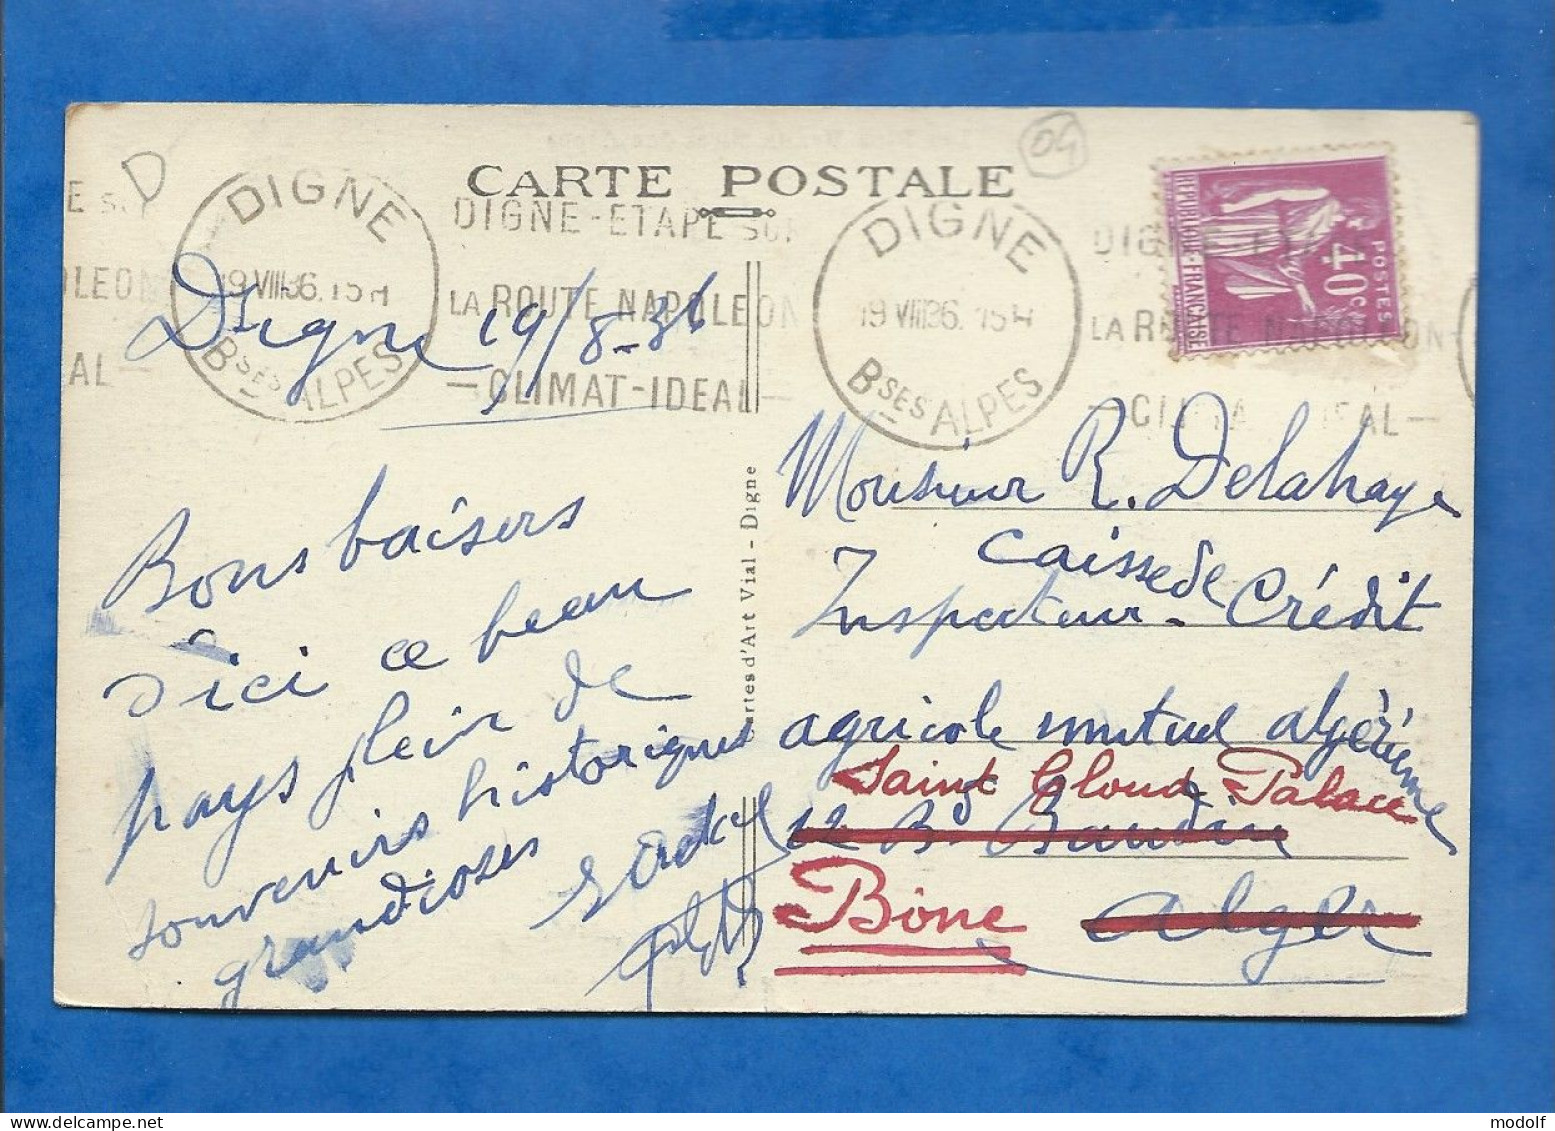 D
04
CARTE POSTALE
E SUR
OLEON
AL -
DIGNE
19 VIII36. 15H
Bses ALPES
DIGNE-ETAPE SUR
LA ROUTE NAPOLEON
- CLIMAT-IDEAL -
DIGNE
19 VIII36. 15H
Bses ALPES
DIGNE-ETAPE
LA ROUTE NAPOLEON
- CLIMAT IDEAL -
REPUBLIQUE-FRANCAISE
40c
POSTES
Digne 19/8-36
Bons baisers
d'ici ce beau
pays plein de
souvenirs historiques
grandioses
Cartes d'Art Vial - Digne
Monsieur R. Delahaye
Inspecteur - Caisse de Crédit
agricole mutuel algérienne
12 Bd Baudin
Alger
Saint Cloud Palace
Bône
modolf